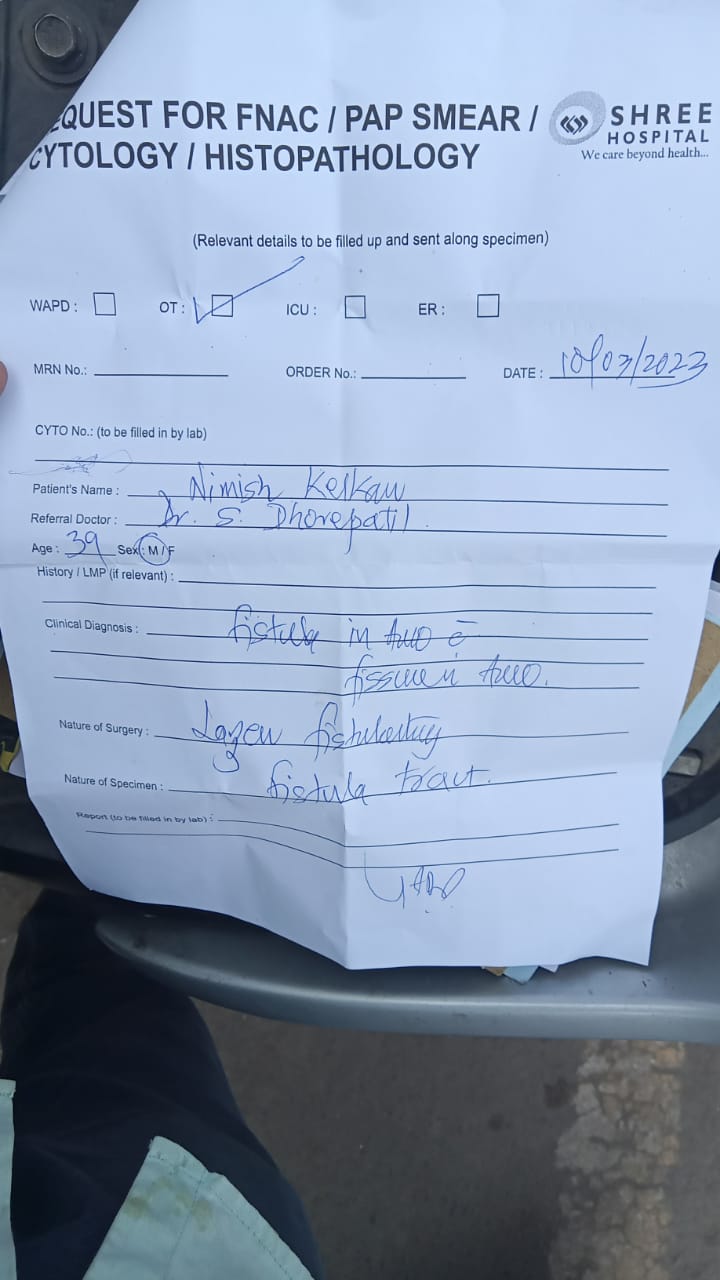 EQUEST FOR FNAC / PAP SMEAR /
CYTOLOGY / HISTOPATHOLOGY
SHREE
HOSPITAL
We care beyond health...
(Relevant details to be filled up and sent along specimen)
WAPD : OT : ICU : ER :
MRN No.: ORDER No.: DATE : 10/03/2023
CYTO No.: (to be filled in by lab)
Patient's Name : Nimish Kelkar
Referral Doctor : Dr. S. Dhorepatil.
Age : 39 Sex : M / F
History / LMP (if relevant) :
Clinical Diagnosis : fistula in Ano c̄
fissure in Ano.
Nature of Surgery : Lazer fistulectomy
Nature of Specimen : fistula tract.
Report (to be filled in by lab) :